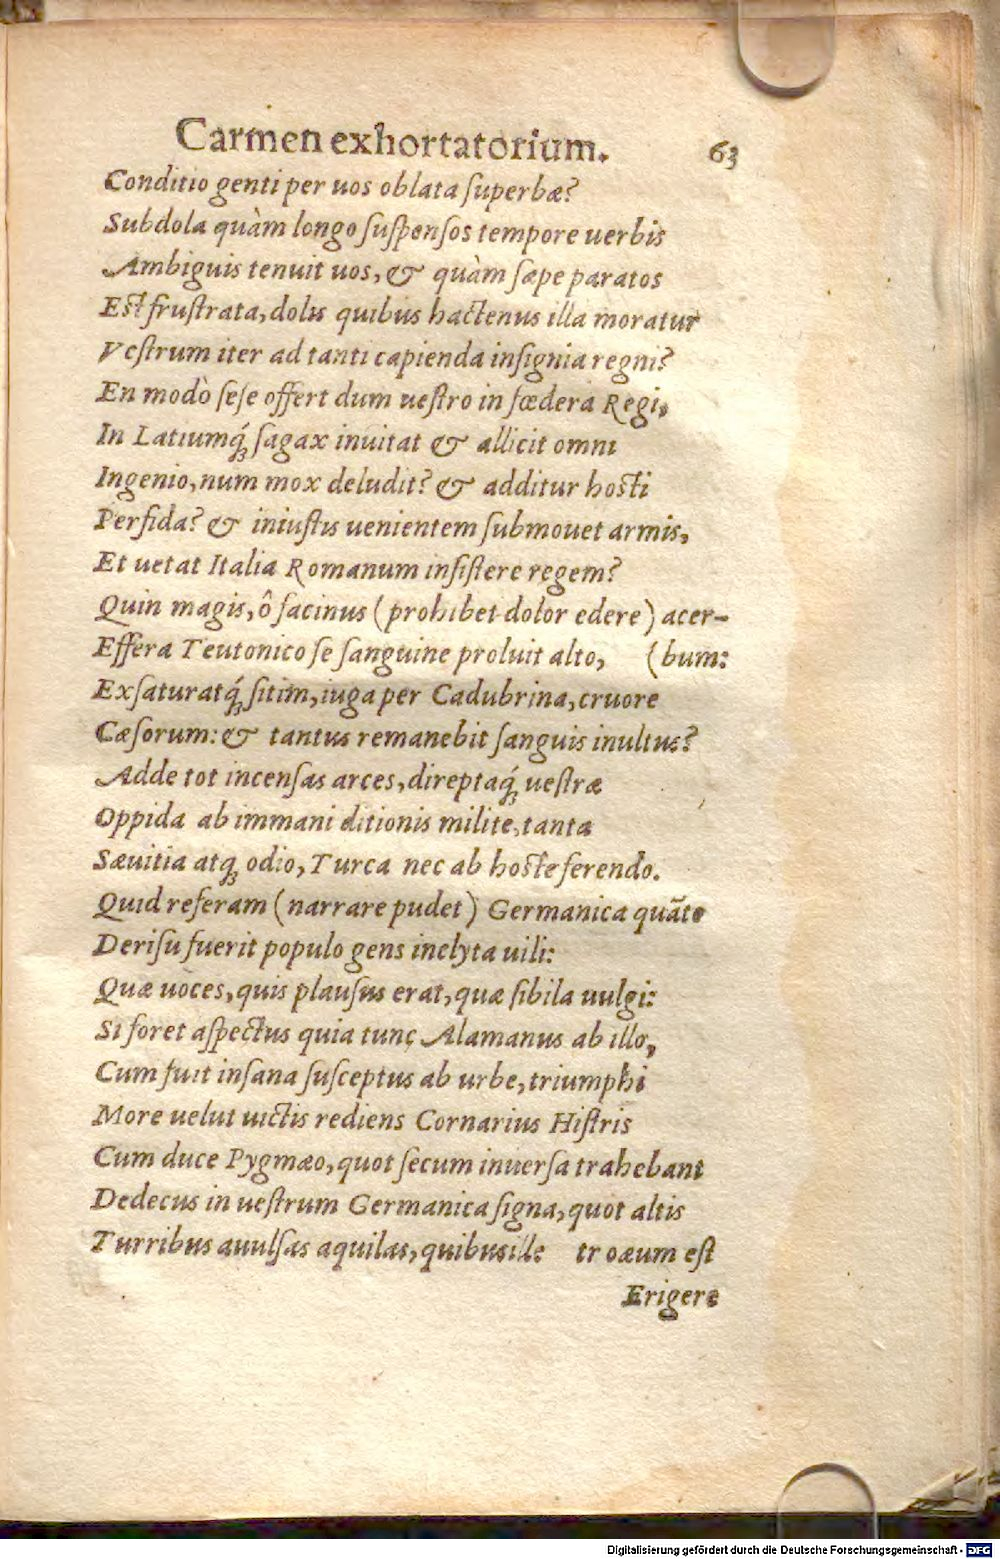 Carmen exhortatorium. 63
Conditio genti per uos oblata ſuperbæ?
Subdola quàm longo ſuſpenſos tempore uerbis
Ambiguis tenuit uos, & quàm ſæpe paratos
Eſt fruſtrata, dolis quibus hactenus illa moratur
Veſtrum iter ad tanti capienda inſignia regni?
En modò ſeſe offert dum ueſtro in fœdera Regi,
In Latiumq́ꝫ ſagax inuitat & allicit omni
Ingenio, num mox deludit? & additur hoſti
Perfida? & iniuſtis uenientem ſubmouet armis,
Et uetat Italia Romanum inſiſtere regem?
Quin magis, ô facinus (prohibet dolor edere) acer-
Effera Teutonico ſe ſanguine proluit alto, (bum:
Exſaturatq́ꝫ ſitim, iuga per Cadubrina, cruore
Cæſorum: & tantus remanebit ſanguis inultus?
Adde tot incenſas arces, direptaq́ꝫ ueſtræ
Oppida ab immani ditionis milite, tanta
Sæuitia atqꝫ odio, Turca nec ab hoſte ferendo.
Quid referam (narrare pudet) Germanica quãto
Deriſu fuerit populo gens inclyta uili:
Quæ uoces, quis plauſus erat, quæ ſibila uulgi:
Si foret aſpectus quia tunc Alamanus ab illo,
Cum fuit inſana ſuſceptus ab urbe, triumphi
More uelut uictis rediens Cornarius Hiſtris
Cum duce Pygmæo, quot ſecum inuerſa trahebant
Dedecus in ueſtrum Germanica ſigna, quot altis
Turribus auulſas aquilas, quibus ille tr oæum eſt
Erigere
Digitalisierung gefördert durch die Deutsche Forschungsgemeinschaft - DFG